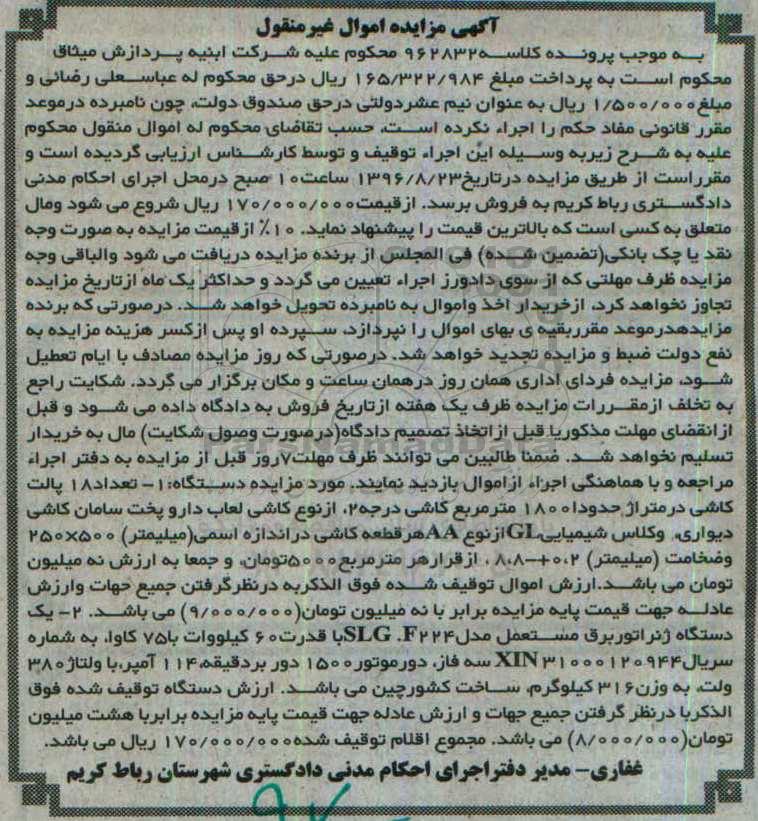 آگهی مزایده اموال غیرمنقول
به موجب پرونده کلاسه۹۶۲۸۳۲ محکوم علیه شرکت ابنیه پردازش میثاق
محکوم است به پرداخت مبلغ ۱۶۵/۳۲۲/۹۸۴ ریال درحق محکوم له عباسعلی رضائی و
مبلغ۱/۵۰۰/۰۰۰ ریال به عنوان نیم عشردولتی درحق صندوق دولت، چون نامبرده درموعد
مقرر قانونی مفاد حکم را اجراء نکرده است، حسب تقاضای محکوم له اموال منقول محکوم
علیه به شرح زیربه وسیله این اجراء توقیف و توسط کارشناس ارزیابی گردیده است و
مقرراست از طریق مزایده درتاریخ۱۳۹۶/۸/۲۳ ساعت۱۰ صبح درمحل اجرای احکام مدنی
دادگستری رباط کریم به فروش برسد. ازقیمت۱۷۰/۰۰۰/۰۰۰ ریال شروع می شود ومال
متعلق به کسی است که بالاترین قیمت را پیشنهاد نماید. ۱۰٪ ازقیمت مزایده به صورت وجه
نقد یا چک بانکی(تضمین شده) فی المجلس از برنده مزایده دریافت می شود والباقی وجه
مزایده ظرف مهلتی که از سوی دادورز اجراء تعیین می گردد و حداکثر یک ماه ازتاریخ مزایده
تجاوز نخواهد کرد، ازخریدار اخذ واموال به نامبرده تحویل خواهد شد. درصورتی که برنده
مزایدهدرموعد مقرربقیه ی بهای اموال را نپردازد، سپرده او پس ازکسر هزینه مزایده به
نفع دولت ضبط و مزایده تجدید خواهد شد. درصورتی که روز مزایده مصادف با ایام تعطیل
شود، مزایده فردای اداری همان روز درهمان ساعت و مکان برگزار می گردد. شکایت راجع
به تخلف ازمقررات مزایده ظرف یک هفته ازتاریخ فروش به دادگاه داده می شود و قبل
ازانقضای مهلت مذکوریا قبل ازاتخاذ تصمیم دادگاه(درصورت وصول شکایت) مال به خریدار
تسلیم نخواهد شد. ضمنا طالبین می توانند ظرف مهلت۷روز قبل از مزایده به دفتر اجراء
مراجعه و با هماهنگی اجراء ازاموال بازدید نمایند. مورد مزایده دستگاه:۱- تعداد۱۸ پالت
کاشی درمتراژ حدودا۱۸۰۰ مترمربع کاشی درجه۲، ازنوع کاشی لعاب دارو پخت سامان کاشی
دیواری، وکلاس شیمیاییGLازنوع AAهرقطعه کاشی دراندازه اسمی(میلیمتر) ۵۰۰×۲۵۰
وضخامت (میلیمتر) ۰،۲+-۸،۸ ، ازقرارهر مترمربع۵۰۰۰تومان، و جمعا به ارزش نه میلیون
تومان می باشد.ارزش اموال توقیف شده فوق الذکربه درنظرگرفتن جمیع جهات وارزش
عادله جهت قیمت پایه مزایده برابر با نه میلیون تومان(۹/۰۰۰/۰۰۰) می باشد. ۲- یک
دستگاه ژنراتوربرق مستعمل مدل۲۲۴SLG .Fبا قدرت۶۰ کیلووات با۷۵ کاوا، به شماره
سریال۳۱۰۰۰۱۲۰۹۴۴XIN سه فاز، دورموتور۱۵۰۰ دور بردقیقه،۱۱۴ آمپر،با ولتاژ۳۸۰
ولت، به وزن۳۱۶ کیلوگرم، ساخت کشورچین می باشد. ارزش دستگاه توقیف شده فوق
الذکربا درنظر گرفتن جمیع جهات و ارزش عادله جهت قیمت پایه مزایده برابربا هشت میلیون
تومان(۸/۰۰۰/۰۰۰) می باشد. مجموع اقلام توقیف شده۱۷۰/۰۰۰/۰۰۰ ریال می باشد.
غفاری- مدیر دفتراجرای احکام مدنی دادگستری شهرستان رباط کریم